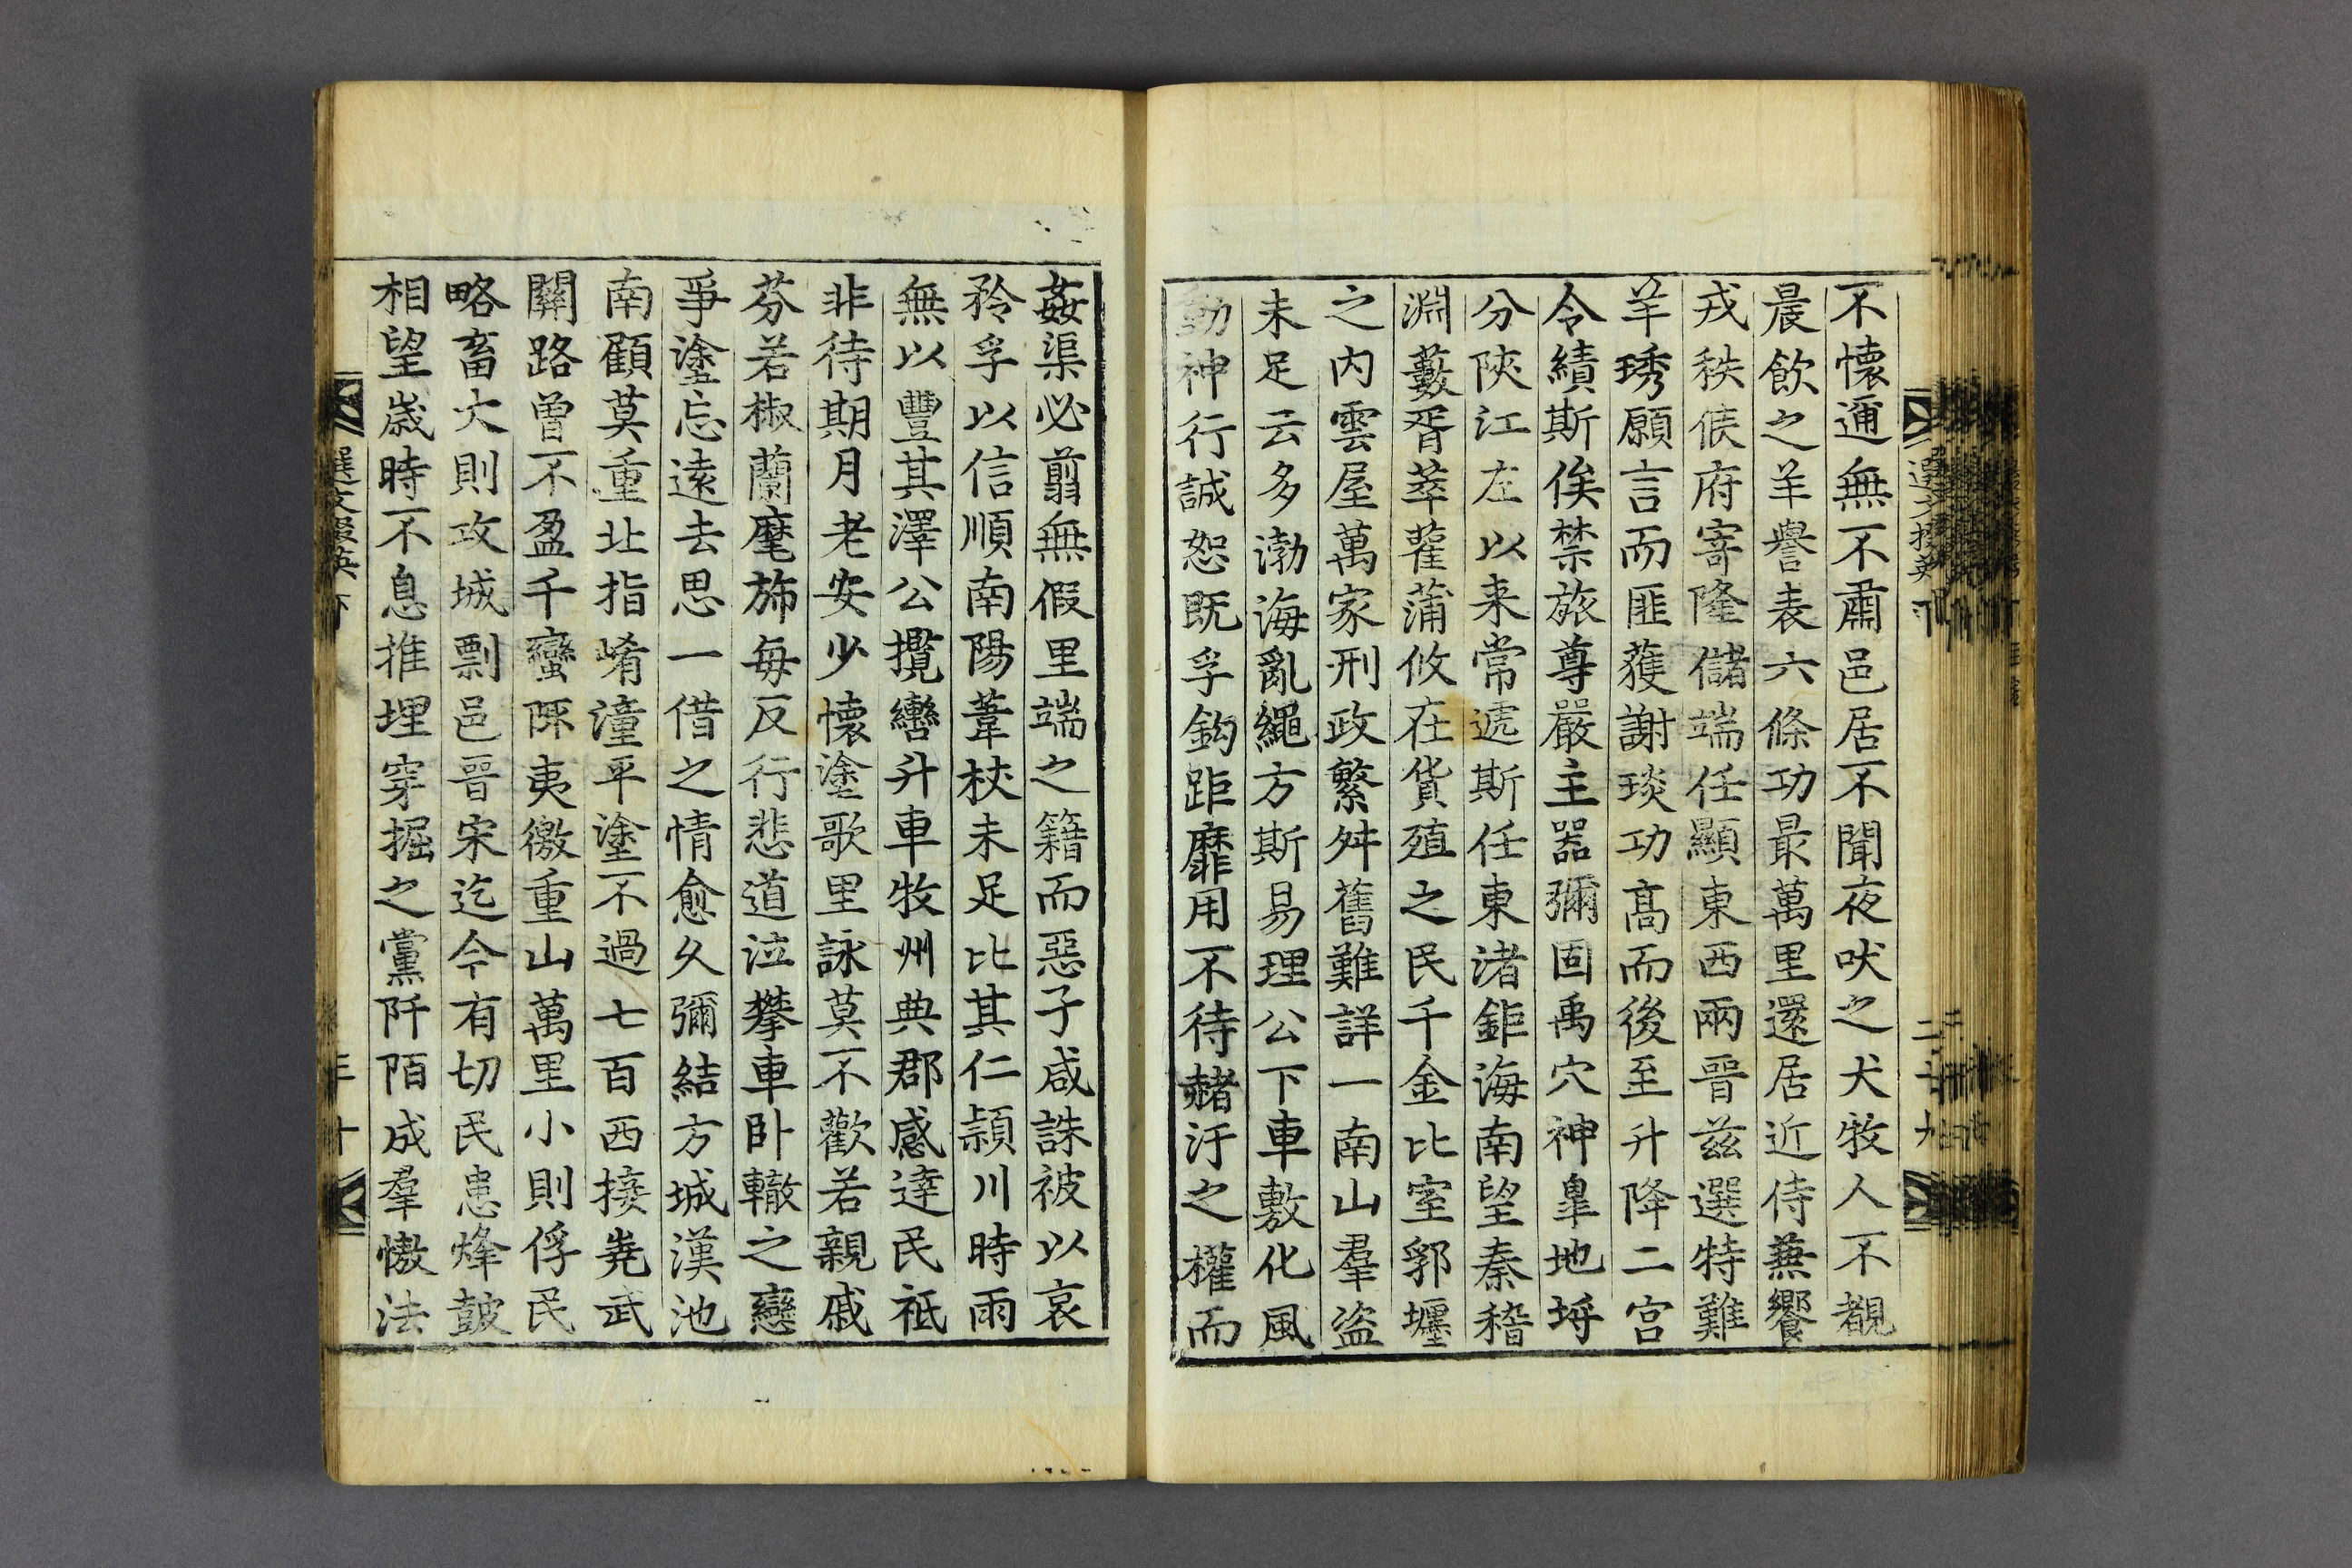 不懷邇無不肅邑居不聞夜吠之犬牧人不覩
晨飲之羊譽表六條功最萬里還居近侍兼饗
戎秩侯府寄隆儲端任顯東西兩晉茲選特難
羊琇願言而匪獲謝琰功高而後至升降二宮
令績斯俟禁旅尊嚴主器彌固禹穴神皐地埒
分陝江左以来常遞斯任東渚鉅海南望秦稽
淵藪胥萃雚蒲攸在貨殖之民千金比室郛㕓
之內雲屋萬家刑政繁舛舊難詳一南山羣盜
未足云多渤海亂繩方斯易理公下車敷化風
動神行誠恕既孚鈎距靡用不待赭汙之權而
選文掇英 下
二十九
姦渠必翦無假里端之籍而惡子咸誅被以哀
矜孚以信順南陽葦杖未足比其仁頴川時雨
無以豐其澤公攬轡升車牧州典郡感達民祗
非待期月老安少懷塗歌里詠莫不歡若親戚
芬若椒蘭麾旆每反行悲道泣攀車臥轍之戀
爭塗忘遠去思一借之情愈久彌結方城漢池
南顧莫重北指崤潼平塗不過七百西接嶢武
關路曾不盈千蠻陬夷徼重山萬里小則俘民
略畜大則攻城剽邑晉宋迄今有切民患烽鼓
相望歲時不息推埋穿掘之黨阡陌成羣慠法
選文掇英 下
三十